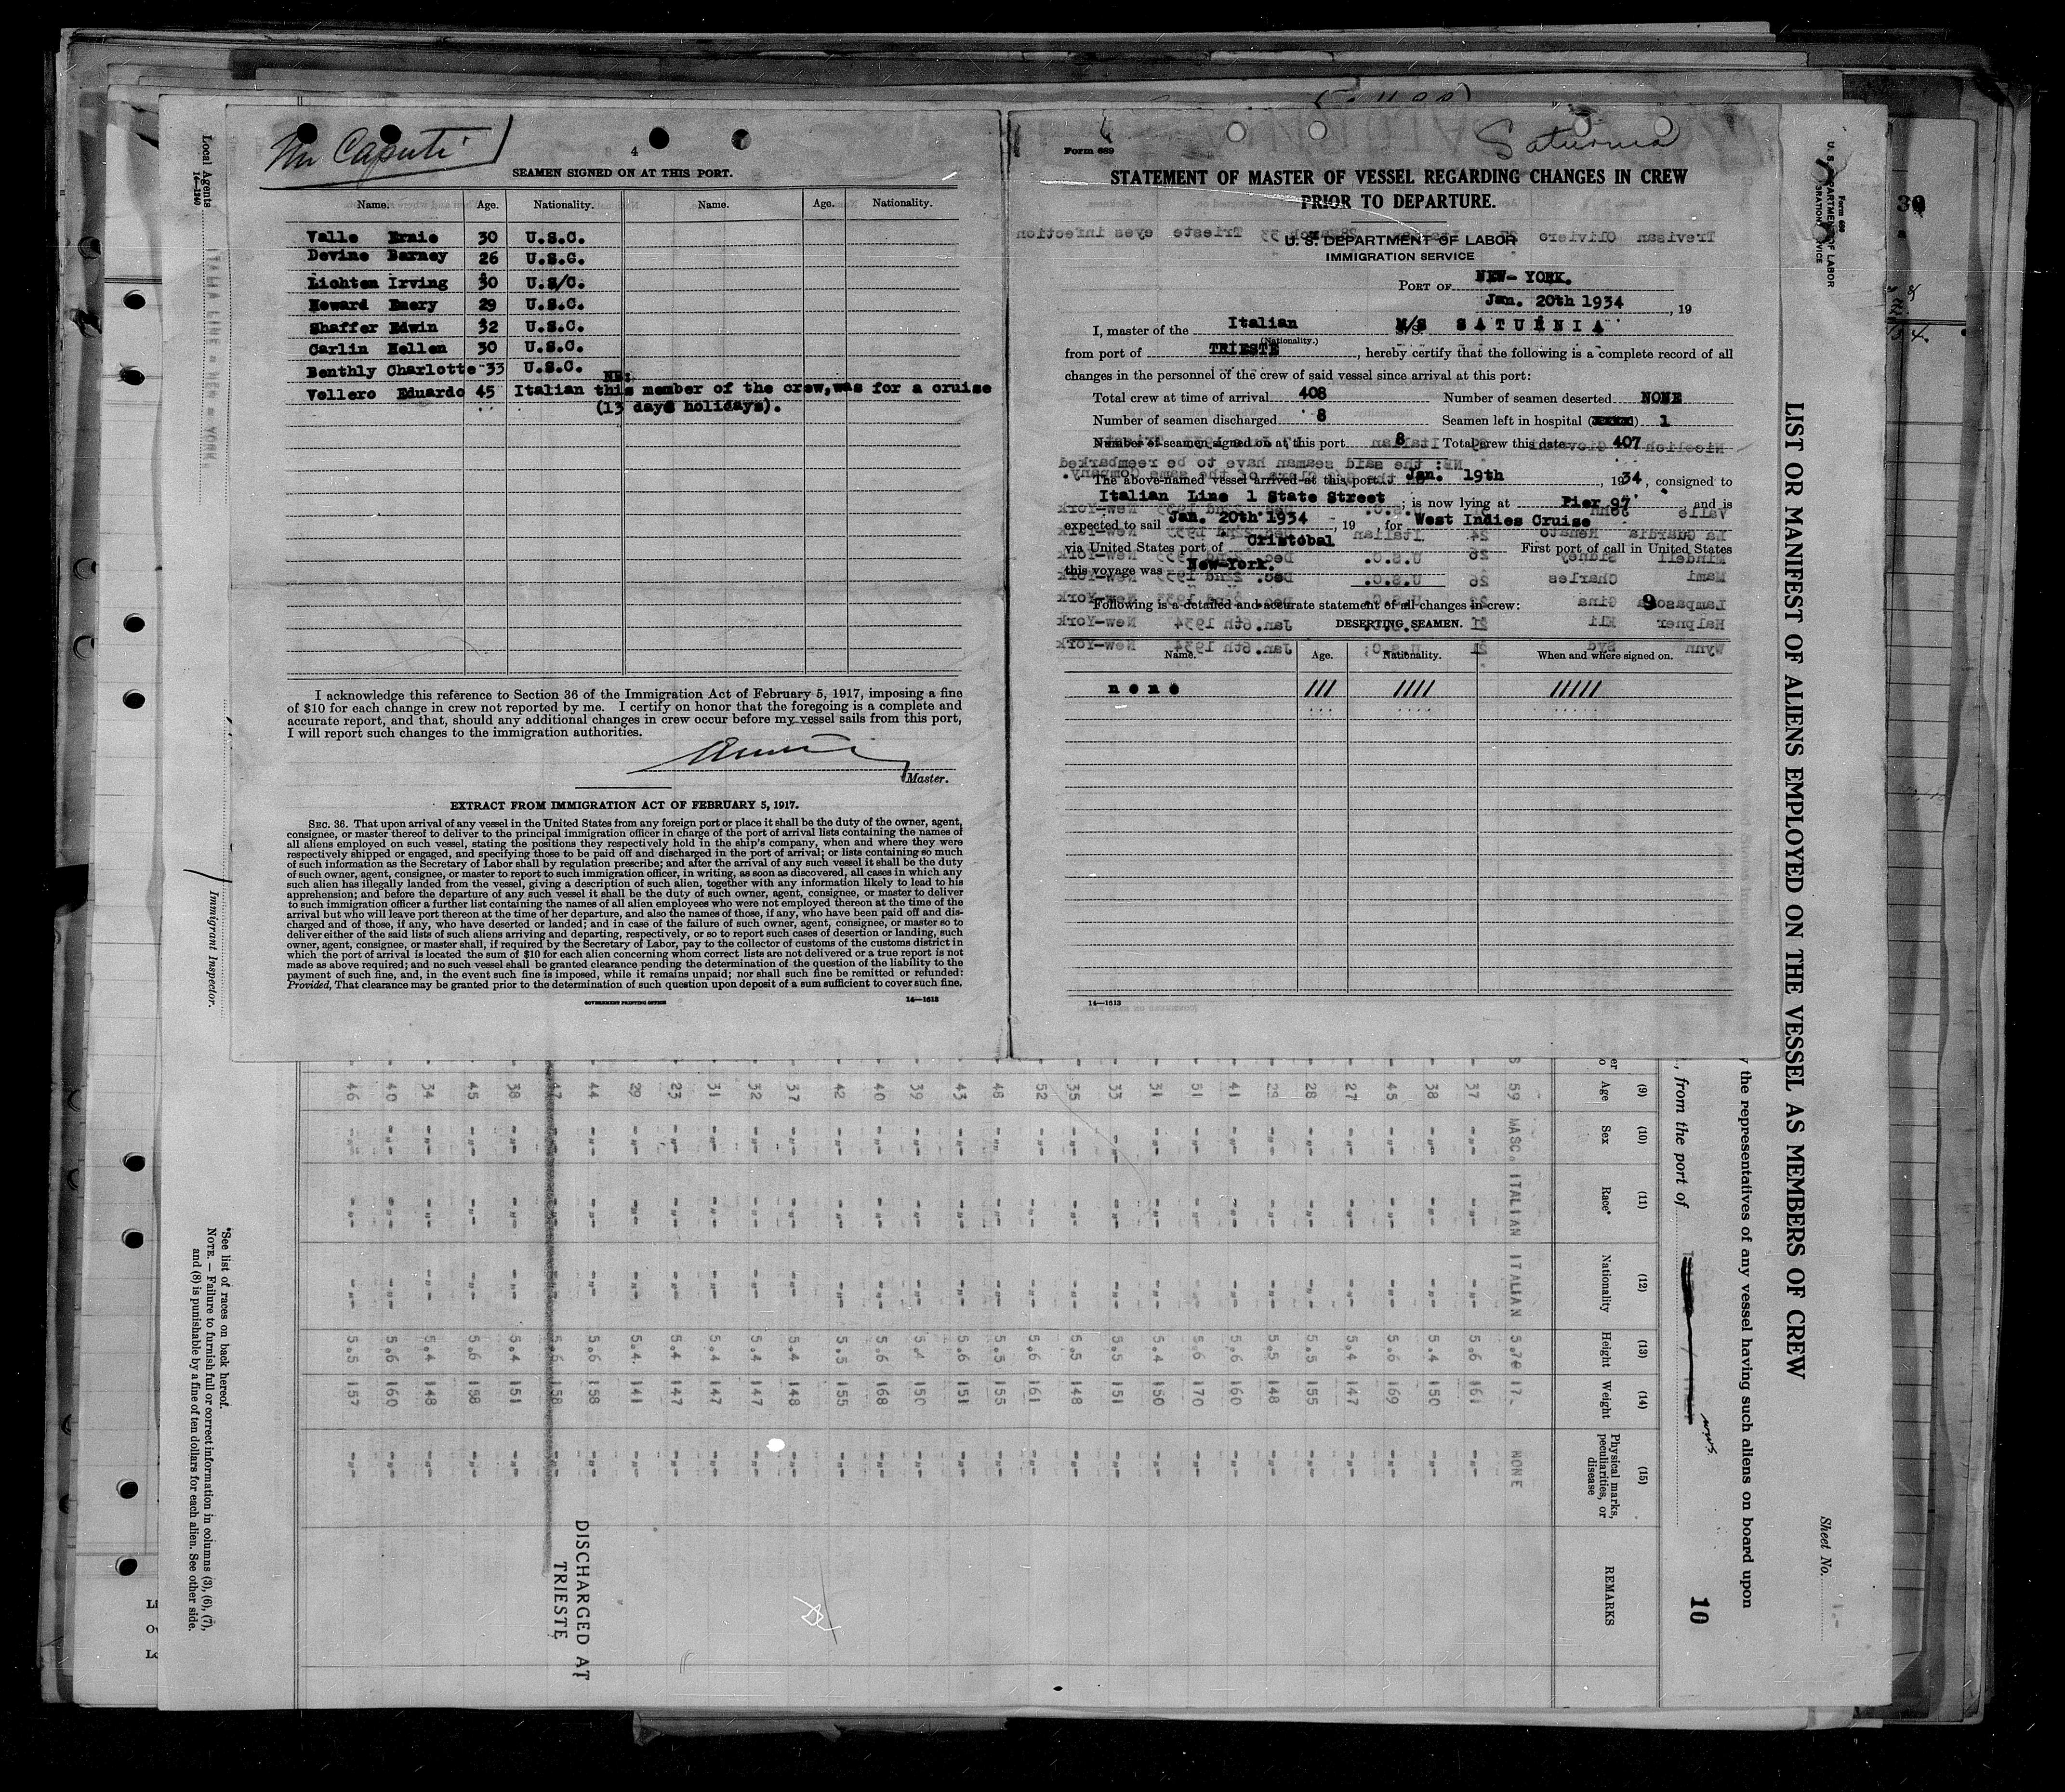 Mr Caputi
4
SEAMEN SIGNED ON AT THIS PORT.
Name. Age. Nationality. Name. Age. Nationality.
Valle Ernie 30 U.S.C.
Devine Barney 26 U.S.C.
Lichten Irving 30 U.S/C.
Howard Emery 29 U.S.C.
Shaffer Edwin 32 U.S.C.
Carlin Hellen 30 U.S.C.
Benthly Charlotte 33 U.S.C.
NB:
Vollero Eduardo 45 Italian this member of the crew,was for a cruise
(13 days holidays).
I acknowledge this reference to Section 36 of the Immigration Act of February 5, 1917, imposing a fine
of $10 for each change in crew not reported by me. I certify on honor that the foregoing is a complete and
accurate report, and that, should any additional changes in crew occur before my vessel sails from this port,
I will report such changes to the immigration authorities.
Master.
EXTRACT FROM IMMIGRATION ACT OF FEBRUARY 5, 1917.
SEC. 36. That upon arrival of any vessel in the United States from any foreign port or place it shall be the duty of the owner, agent,
consignee, or master thereof to deliver to the principal immigration officer in charge of the port of arrival lists containing the names of
all aliens employed on such vessel, stating the positions they respectively hold in the ship's company, when and where they were
respectively shipped or engaged, and specifying those to be paid off and discharged in the port of arrival; or lists containing so much
of such information as the Secretary of Labor shall by regulation prescribe; and after the arrival of any such vessel it shall be the duty
of such owner, agent, consignee, or master to report to such immigration officer, in writing, as soon as discovered, all cases in which any
such alien has illegally landed from the vessel, giving a description of such alien, together with any information likely to lead to his
apprehension; and before the departure of any such vessel it shall be the duty of such owner, agent, consignee, or master to deliver
to such immigration officer a further list containing the names of all alien employees who were not employed thereon at the time of the
arrival but who will leave port thereon at the time of her departure, and also the names of those, if any, who have been paid off and dis-
charged and of those, if any, who have deserted or landed; and in case of the failure of such owner, agent, consignee, or master so to
deliver either of the said lists of such aliens arriving and departing, respectively, or so to report such cases of desertion or landing, such
owner, agent, consignee, or master shall, if required by the Secretary of Labor, pay to the collector of customs of the customs district in
which the port of arrival is located the sum of $10 for each alien concerning whom correct lists are not delivered or a true report is not
made as above required; and no such vessel shall be granted clearance pending the determination of the question of the liability to the
payment of such fine, and, in the event such fine is imposed, while it remains unpaid; nor shall such fine be remitted or refunded:
Provided, That clearance may be granted prior to the determination of such question upon deposit of a sum sufficient to cover such fine.
GOVERNMENT PRINTING OFFICE 14—1613
Saturnia
Form 689
STATEMENT OF MASTER OF VESSEL REGARDING CHANGES IN CREW
PRIOR TO DEPARTURE.
U. S. DEPARTMENT OF LABOR
IMMIGRATION SERVICE
PORT OF NEW-YORK.
Jan. 20th 1934, 19
I, master of the Italian M/S SATURNIA
(Nationality.)
from port of TRIESTE, hereby certify that the following is a complete record of all
changes in the personnel of the crew of said vessel since arrival at this port:
Total crew at time of arrival 408 Number of seamen deserted NONE
Number of seamen discharged 8 Seamen left in hospital 1
Number of seamen signed on at this port 8 Total crew this date 407
The above-named vessel arrived at this port Jan. 19th, 1934, consigned to
Italian Line 1 State Street, is now lying at Pier 97 and is
expected to sail Jan. 20th 1934, 19, for West Indies Cruise
via United States port of Cristobal First port of call in United States
this voyage was New-York.
Following is a detailed and accurate statement of all changes in crew: 9
DESERTING SEAMEN.
Name. Age. Nationality. When and where signed on.
none /// //// /////
14—1613
Local Agents ITALIA LINE = NEW = YORK.
14—1240
Immigrant Inspector.
*See list of races on back hereof.
NOTE. — Failure to furnish full or correct information in columns (3), (6), (7),
and (8) is punishable by a fine of ten dollars for each alien. See other side.
Form 689
U. S. DEPARTMENT OF LABOR
LIST OR MANIFEST OF ALIENS EMPLOYED ON THE VESSEL AS MEMBERS OF CREW
Sheet No. 1.-
the representatives of any vessel having such aliens on board upon
, from the port of
10
(9) (10) (11) (12) (13) (14) (15)
Age Sex Race* Nationality Height Weight Physical marks, peculiarities, or disease REMARKS
59 MASC. ITALIAN ITALIAN 5.7 NONE
37 -"- -"- -"- 5.6 161 -"-
38 -"- -"- -"- 5.4 150 -"-
45 -"- -"- -"- 5.6 169 -"-
27 -"- -"- -"- 5.4 147 -"-
28 -"- -"- -"- 5.5 155 -"-
29 -"- -"- -"- 5.5 148 -"-
41 -"- -"- -"- 5.6 160 -"-
51 -"- -"- -"- 5.6 170 -"-
31 -"- -"- -"- 5.4 150 -"-
33 -"- -"- -"- 5.5 151 -"-
35 -"- -"- -"- 5.5 148 -"-
52 -"- -"- -"- 5.6 161 -"-
48 -"- -"- -"- 5.5 155 -"-
43 -"- -"- -"- 5.6 151 -"-
39 -"- -"- -"- 5.4 150 -"-
40 -"- -"- -"- 5.6 168 -"-
42 -"- -"- -"- 5.5 155 -"-
37 -"- -"- -"- 5.4 148 -"-
32 -"- -"- -"- 5.4 147 -"-
31 -"- -"- -"- 5.4 147 -"-
23 -"- -"- -"- 5.4 147 -"-
29 -"- -"- -"- 5.4 141 -"-
44 -"- -"- -"- 5.6 158 -"-
47 -"- -"- -"- 5.6 158 -"- DISCHARGED AT TRIESTE
38 -"- -"- -"- 5.4 151 -"-
45 -"- -"- -"- 5.6 158 -"-
34 -"- -"- -"- 5.4 148 -"-
40 -"- -"- -"- 5.6 160 -"-
46 -"- -"- -"- 5.5 157 -"-